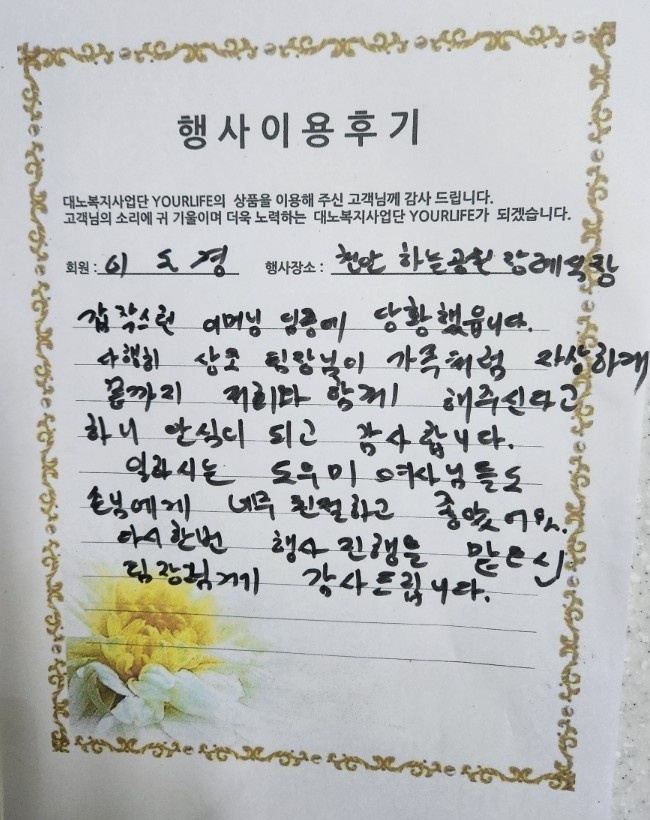 행사이용후기
대노복지사업단 YOURLIFE의 상품을 이용해 주신 고객님께 감사 드립니다.
고객님의 소리에 귀 기울이며 더욱 노력하는 대노복지사업단 YOURLIFE가 되겠습니다.
회원 : 이 도 경 행사장소 : 천안 하늘공원 장례식장
갑작스런 어머님 임종에 당황했읍니다.
다행히 상조 팀장님이 가족처럼 자상하게
끝까지 저희와 함께 해주신다고
하니 안심이 되고 감사합니다.
일하시는 도우미 여사님들도
손님에게 너무 친절하고 좋았어요.
다시한번 행사 진행을 맡으신
팀장님께 감사드립니다.